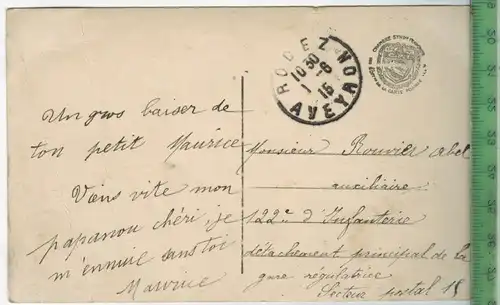 RODEZ
10 30
1-6
15
AVEYRON
CHAMBRE SYNDICALE
DE LA CARTE POSTALE
Un gros baiser de
ton petit Maurice
Viens vite mon
papanou chéri, je
m'ennuie sans toi
Maurice
Monsieur Rouvier Abel
auxiliaire
122e d'Infanterie
détachement principal de la
gare régulatrice
Secteur postal 15